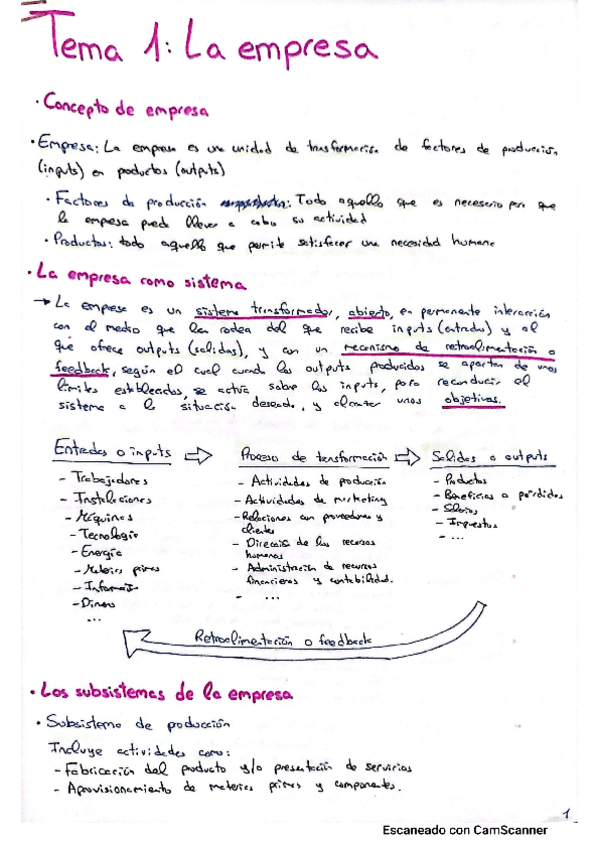 Tema 1: La empresa
· Concepto de empresa
· Empresa: La empresa es una unidad de transformación de factores de producción
(inputs) en productos (outputs)
· Factores de producción : Todo aquello que es necesario para que
la empresa pueda llevar a cabo su actividad
· Productos: todo aquello que permite satisfacer una necesidad humana
· La empresa como sistema
→ La empresa es un sistema transformador, abierto, en permanente interacción
con el medio que les rodea del que recibe inputs (entradas) y al
que ofrece outputs (salidas), y con un mecanismo de retroalimentación o
feedback, según el cual cuando los outputs producidos se apartan de unos
límites establecidos, se actúa sobre los inputs, para reconducir el
sistema a la situación deseada, y alcanzar unos objetivos.
Entradas o inputs ⇒ Proceso de transformación ⇒ Salidas o outputs
- Trabajadores
- Instalaciones
- Máquinas
- Tecnología
- Energía
- Materias primas
- Informació
- Dinero
...
- Actividades de producción
- Actividades de marketing
- Relaciones con proveedores y
clientes
- Dirección de los recursos
humanos
- Administración de recursos
financieros y contabilidad.
- ...
- Productos
- Beneficios o pérdidas
- Salarios
- Impuestos
- ...
Retroalimentación o feedback
· Los subsistemas de la empresa
· Subsistema de producción
Incluye actividades como:
- Fabricación del producto y/o presentación de servicios
- Aprovisionamiento de materias primas y componentes.
1
Escaneado con CamScanner